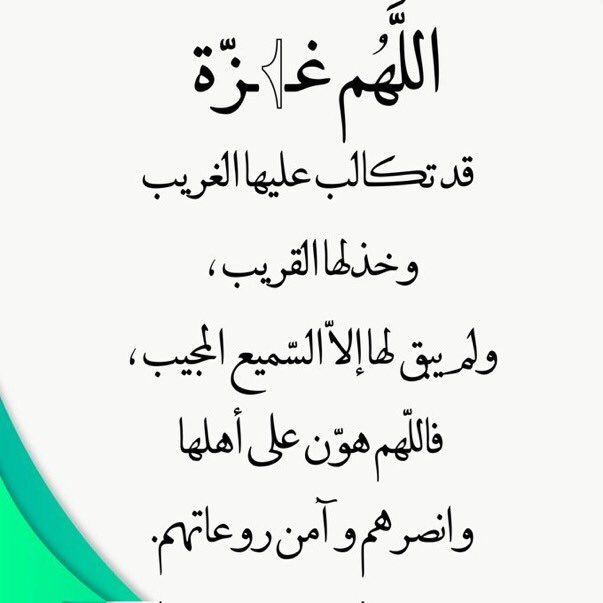 اللَّهُم غـزّة
قد تكالب عليها الغريب
وخذلها القريب،
ولم يبق لها إلاّ السّميع المجيب،
فاللّهم هوّن على أهلها
وانصرهم و آمن روعاتهم.